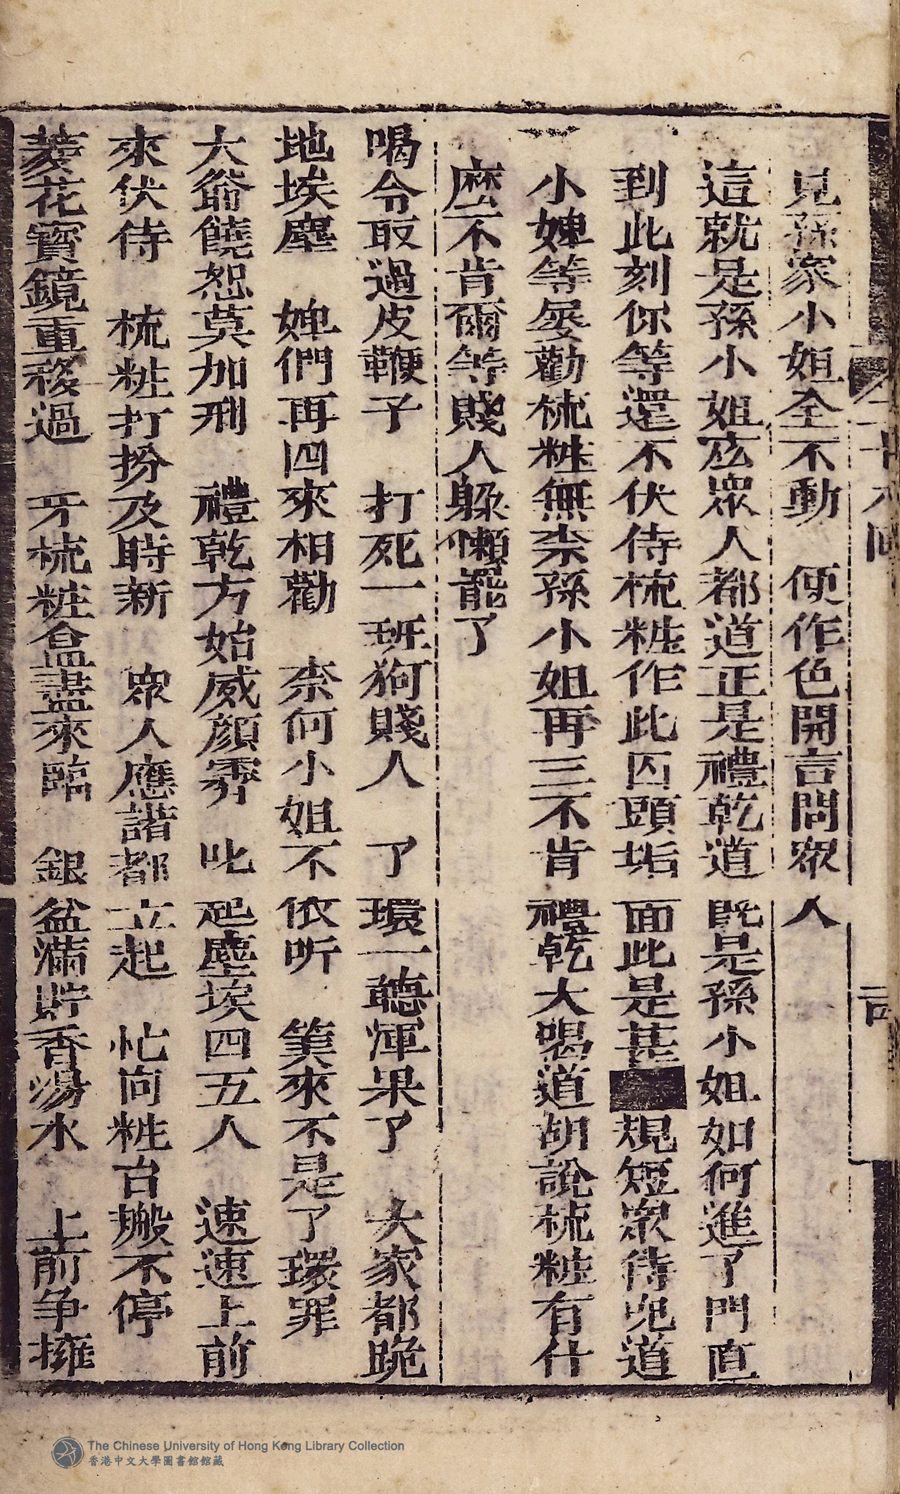 二十八回
見孫家小姐全不動　便作色開言問衆人
這就是孫小姐広衆人都道正是禮乾道既是孫小姐如何進了門直
到此刻你等還不伏侍梳粧作此囚頭垢面此是甚規短衆待児道
小婢等屡勸梳粧無柰孫小姐再三不肯禮乾大喝道胡說梳粧有什
麽不肯爾等賤人躱懶罷了
喝令取過皮鞭子　打死一班狗賤人　了環一聽渾呆了　大家都跪
地埃塵　婢們再四來相勸　柰何小姐不依听　筭來不是了環罪
大爺饒恕莫加刑　禮乾方始威顔霽　叱起塵埃四五人　速速上前
來伏侍　梳粧打扮及時新　衆人應諾都立起　忙向粧台搬不停
菱花寳鏡重移過　牙梳粧盒盡來臨　銀盆滿貯香湯水　上前争擁
The Chinese University of Hong Kong Library Collection
香港中文大學圖書館館藏